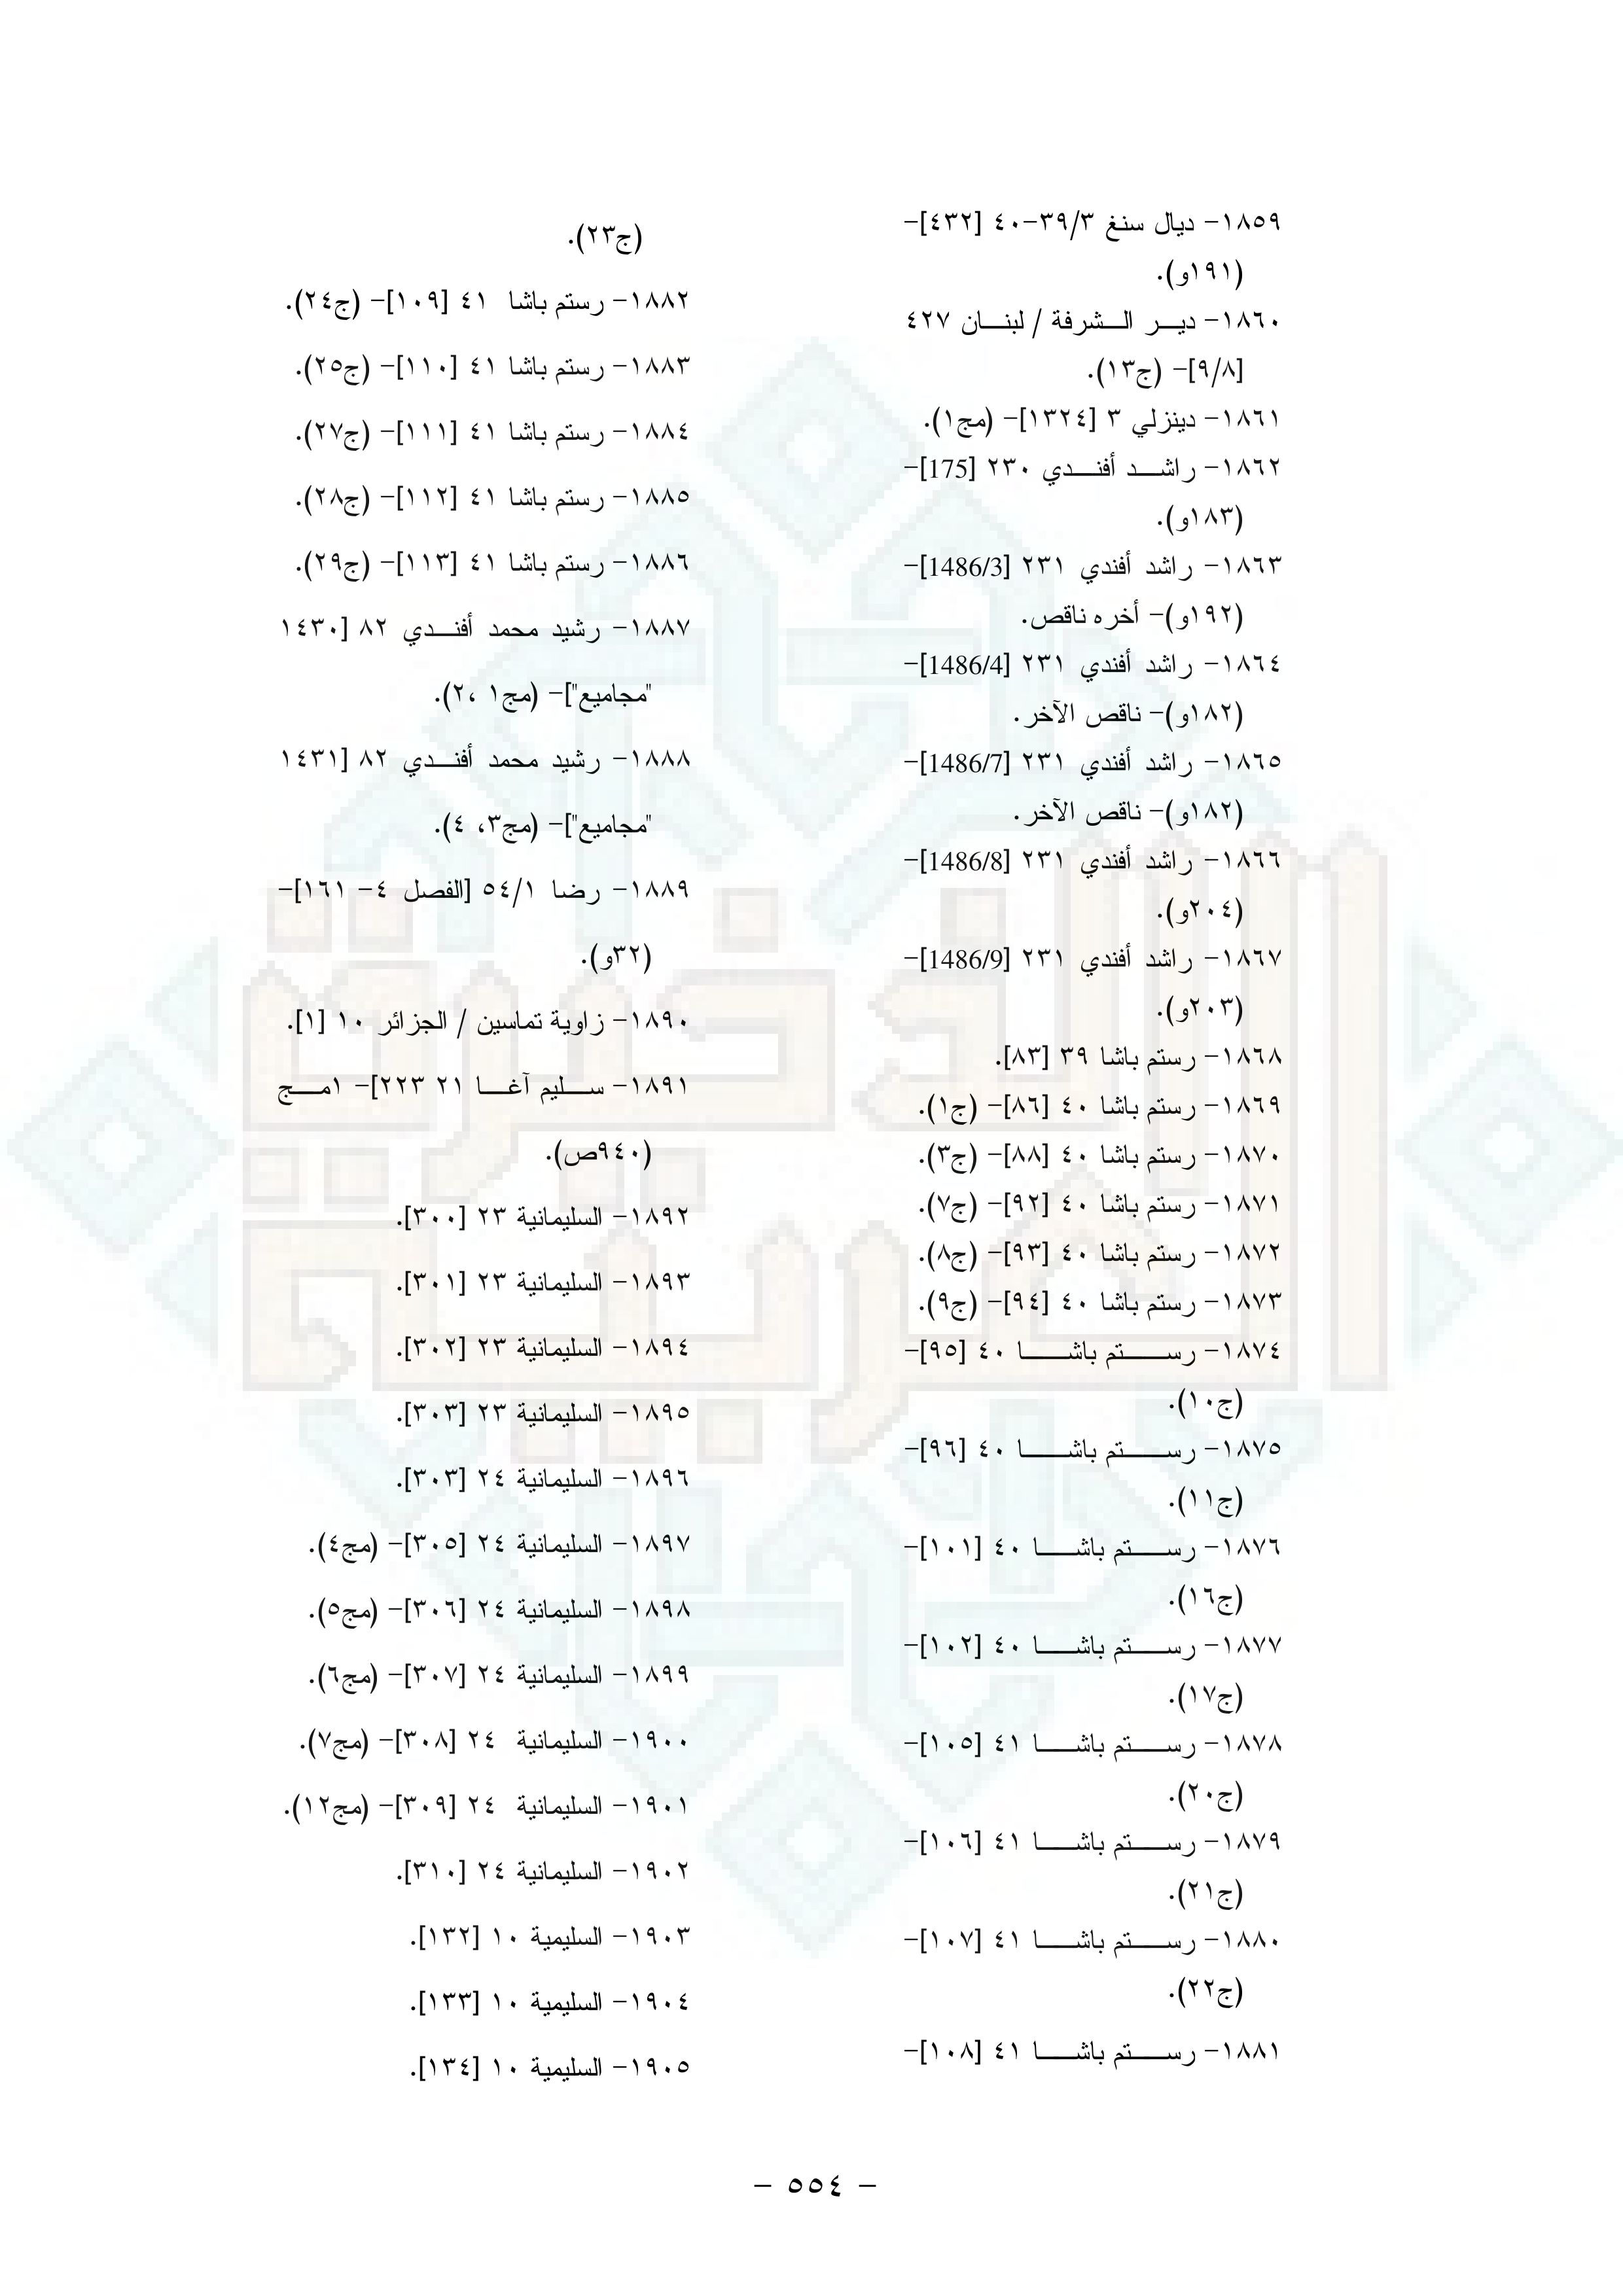 ١٨٥٩- ديال سنغ ٣٩/٣-٤٠ [٤٣٢]-
(١٩١و).
١٨٦٠- ديـــر الـــشرفة / لبنـــان ٤٢٧
[٩/٨]- (ج١٣).
١٨٦١- دينزلي ٣ [١٣٢٤]- (مج١).
١٨٦٢- راشـــد أفنـــدي ٢٣٠ [175]-
(١٨٣و).
١٨٦٣- راشد أفندي ٢٣١ [1486/3]-
(١٩٢و)- أخره ناقص.
١٨٦٤- راشد أفندي ٢٣١ [1486/4]-
(١٨٢و)- ناقص الآخر.
١٨٦٥- راشد أفندي ٢٣١ [1486/7]-
(١٨٢و)- ناقص الآخر.
١٨٦٦- راشد أفندي ٢٣١ [1486/8]-
(٢٠٤و).
١٨٦٧- راشد أفندي ٢٣١ [1486/9]-
(٢٠٣و).
١٨٦٨- رستم باشا ٣٩ [٨٣].
١٨٦٩- رستم باشا ٤٠ [٨٦]- (ج١).
١٨٧٠- رستم باشا ٤٠ [٨٨]- (ج٣).
١٨٧١- رستم باشا ٤٠ [٩٢]- (ج٧).
١٨٧٢- رستم باشا ٤٠ [٩٣]- (ج٨).
١٨٧٣- رستم باشا ٤٠ [٩٤]- (ج٩).
١٨٧٤- رســـتم باشـــا ٤٠ [٩٥]-
(ج١٠).
١٨٧٥- رســـتم باشـــا ٤٠ [٩٦]-
(ج١١).
١٨٧٦- رســـتم باشـــا ٤٠ [١٠١]-
(ج١٦).
١٨٧٧- رســـتم باشـــا ٤٠ [١٠٢]-
(ج١٧).
١٨٧٨- رســـتم باشـــا ٤١ [١٠٥]-
(ج٢٠).
١٨٧٩- رســـتم باشـــا ٤١ [١٠٦]-
(ج٢١).
١٨٨٠- رســـتم باشـــا ٤١ [١٠٧]-
(ج٢٢).
١٨٨١- رســـتم باشـــا ٤١ [١٠٨]-
(ج٢٣).
١٨٨٢- رستم باشا ٤١ [١٠٩]- (ج٢٤).
١٨٨٣- رستم باشا ٤١ [١١٠]- (ج٢٥).
١٨٨٤- رستم باشا ٤١ [١١١]- (ج٢٧).
١٨٨٥- رستم باشا ٤١ [١١٢]- (ج٢٨).
١٨٨٦- رستم باشا ٤١ [١١٣]- (ج٢٩).
١٨٨٧- رشيد محمد أفنـــدي ٨٢ [١٤٣٠
"مجاميع"]- (مج١ ،٢).
١٨٨٨- رشيد محمد أفنـــدي ٨٢ [١٤٣١
"مجاميع"]- (مج٣، ٤).
١٨٨٩- رضا ٥٤/١ [الفصل ٤- ١٦١]-
(٣٢و).
١٨٩٠- زاوية تماسين / الجزائر ١٠ [١].
١٨٩١- ســـليم آغـــا ٢١ ٢٢٣]- ١مـــج
(٩٤٠ص).
١٨٩٢- السليمانية ٢٣ [٣٠٠].
١٨٩٣- السليمانية ٢٣ [٣٠١].
١٨٩٤- السليمانية ٢٣ [٣٠٢].
١٨٩٥- السليمانية ٢٣ [٣٠٣].
١٨٩٦- السليمانية ٢٤ [٣٠٣].
١٨٩٧- السليمانية ٢٤ [٣٠٥]- (مج٤).
١٨٩٨- السليمانية ٢٤ [٣٠٦]- (مج٥).
١٨٩٩- السليمانية ٢٤ [٣٠٧]- (مج٦).
١٩٠٠- السليمانية ٢٤ [٣٠٨]- (مج٧).
١٩٠١- السليمانية ٢٤ [٣٠٩]- (مج١٢).
١٩٠٢- السليمانية ٢٤ [٣١٠].
١٩٠٣- السليمية ١٠ [١٣٢].
١٩٠٤- السليمية ١٠ [١٣٣].
١٩٠٥- السليمية ١٠ [١٣٤].
- ٥٥٤ -